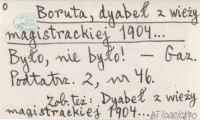 Boruta, dyabeł z wieży
magistrackiej 1904...
Było, nie było! — Gaz.
Podtatrz. 2, nr 46.
Zob. też: Dyabeł z wieży
magistrackiej 1904...